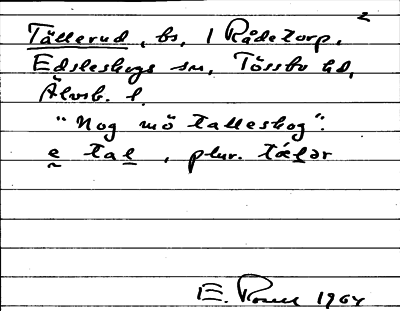 2
Tällerud, bs, 1 Rådetorp,
Edsleskogs sn, Tössbo hd,
Älvsb. l.
"Nog mö talleskog".
e tal, plur. tælər
E. Rosell 1964